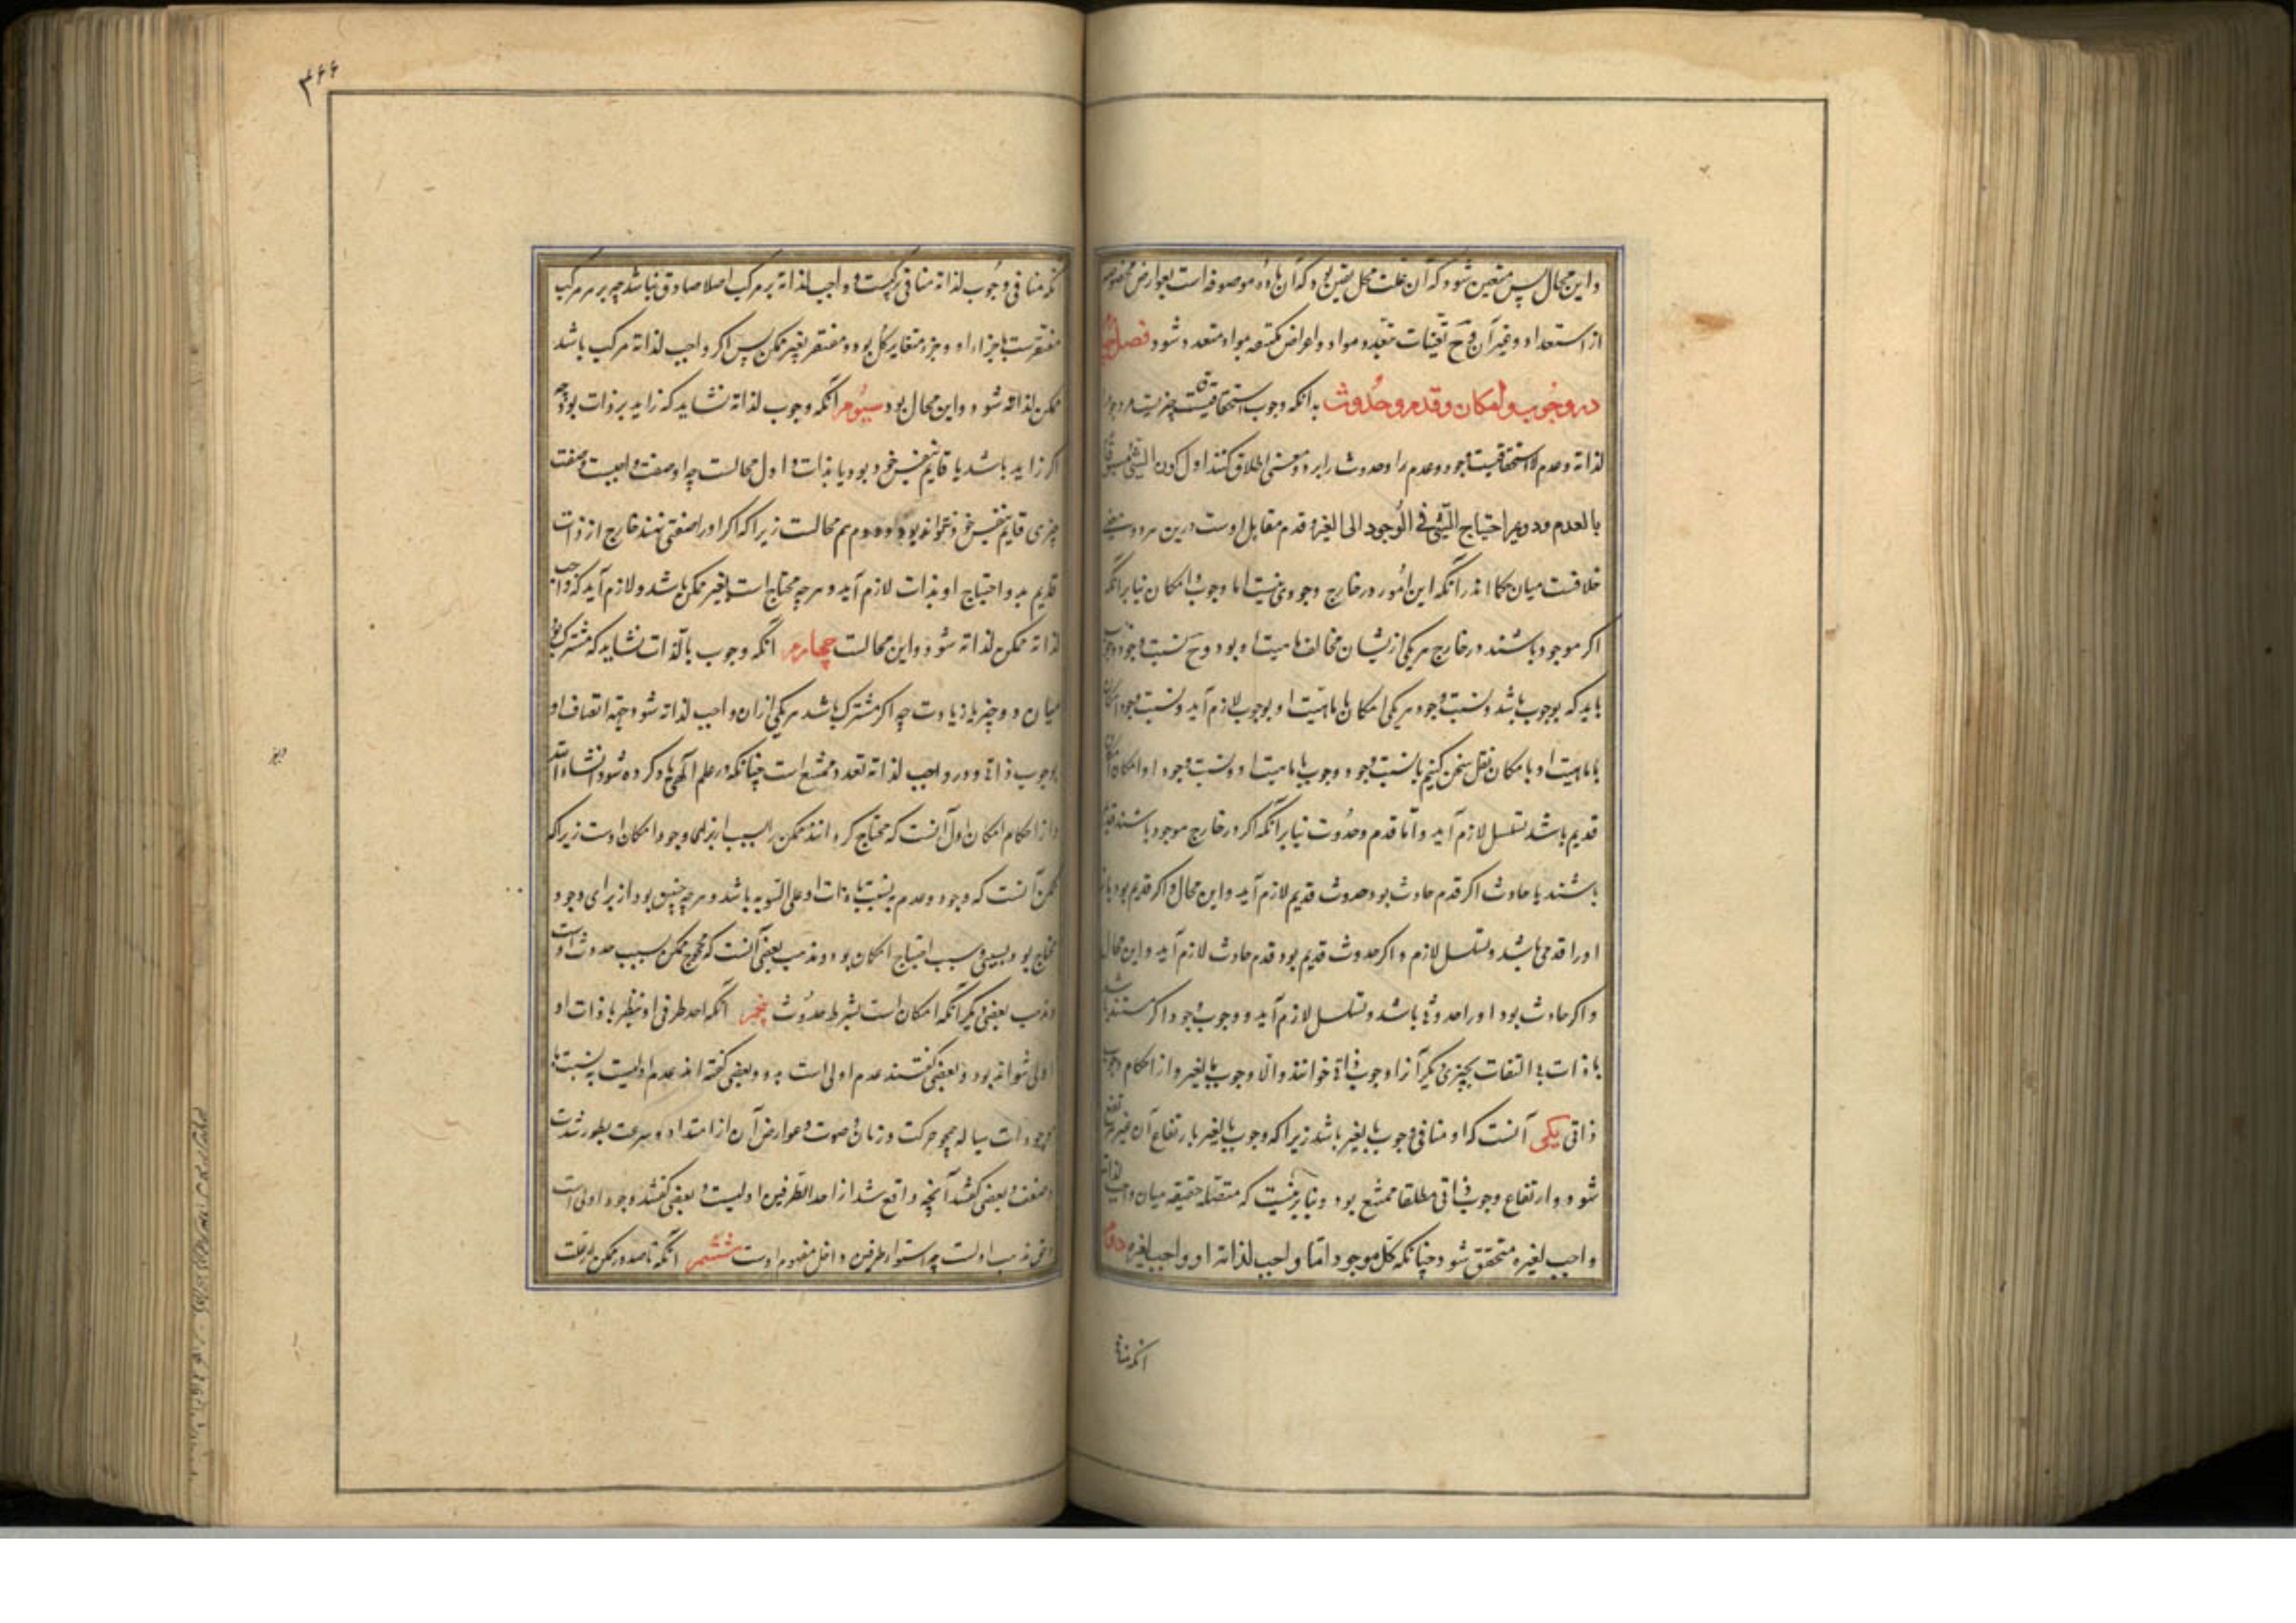 و این محال پس متعین شود که آن علت محل تعین بود که آن ماده موصوفه است بعوارض مخصوصه
از استعداد و غیر آن و ح تعینات متعدده مواد و اعراض مکتنفه بمواد متعدد شود فصل
در وجوب و امکان و قدم و حدوث بدانکه وجوب استحقاقیت چیزیست مر وجود را
لذاته و عدم لا استحقاقیت وجود و عدم را و حدوث را بر دو معنی اطلاق کنند اول کون الشئ مسبوقا
بالعدم و دویم احتیاج الشئ فی الوجود الی الغیر و قدم مقابل اوست درین هر دو معنی
خلافست میان حکما اندر آنکه این امور در خارج وجودی نیست اما وجوب و امکان بنا بر آنکه
اگر موجود باشند در خارج هر یکی ازیشان مخالف ماهیت او بود و ح نسبت وجود وجوب
باید که بوجوب باشد و نسبت وجود هر یکی امکان با ماهیت او بوجوب لازم آید و نسبت وجود امکان
با ماهیت او با مکان نقل سخن کنیم با نسبت وجود وجوب با ماهیت او و نسبت وجود او امکان
قدیم باشد تسلسل لازم آید و اما قدم و حدوث بنا بر آنکه اگر در خارج موجود باشند قدیم
باشند یا حادث اگر قدم حادث بود حدوث قدیم لازم آید و این محال و اگر قدیم بود
او را قدمی باشد و تسلسل لازم و اگر حدوث قدیم بود قدم حادث لازم آید و این محال
و اگر حادث بود او را حدوثی باشد و تسلسل لازم آید و وجوب وجود اگر مستند باشد
با ذات بی التفات بچیزی دیگر آنرا وجوب ذاتی خوانند و الا وجوب بالغیر و از احکام وجوب
ذاتی یکی آنست که او منافی وجوب بالغیر باشد زیرا که وجوب بالغیر بارتفاع آن غیر مرتفع
شود و ارتفاع وجوب ذاتی مطلقا ممتنع بود و بنا برینست که منفصله حقیقیه میان واجب لذاته
و واجب لغیره متحقق شود چنانکه کل موجود اما واجب لذاته او واجب لغیره دوم
انکه منافی
۳۶۶
نکه منافی وجوب لذاته منافی ترکیبست و واجب لذاته بر مرکب اصلا صادق نباشد چه هر مرکب
مفتقرست باجزاء او و جزء مغایر کل بود و مفتقر بغیر ممکن پس اگر واجب لذاته مرکب باشد
ممکن لذاته شود و این محال بود سیوم آنکه وجوب لذاته نشاید که زاید بر ذات بود چه
اگر زاید باشد یا قایم بنفس خود بود یا بذات و اول محالست چه او صفت واجبست و صفت
چیزی قایم بنفس خود نتواند بود و دوم هم محالست زیرا که اگر او را صفتی نهند خارج از ذات
قدیم بدو احتیاج او بذات لازم آید و هر چه محتاج است بغیر ممکن باشد و لازم آید که واجب
لذاته ممکن لذاته شود و این محالست چهارم آنکه وجوب بالذات نشاید که مشترک بود
میان دو چیز یا زیادت چه اگر مشترک باشد هر یکی ازان واجب لذاته شود جهة اتصاف او
بوجوب ذاتی و در واجب لذاته تعدد ممتنع است چنانکه در علم الهی یاد کرده شود انشاء الله
و از احکام امکان اول آنست که محتاج گرداند ممکن را بسبب از برای وجود امکان اوست زیرا که
ممکن آنست که وجود و عدم به نسبت با ذات او علی السویه باشد و هر چه چنین بود از برای وجود
محتاج بود بسببی و سبب احتیاج امکان بود و مذهب بعضی آنست که محوج ممکن بسبب حدوث اوست
و مذهب بعضی دیگر آنکه امکان است بشرط حدوث پنجم آنکه احد طرفی او بنظر با ذات او
اولی نتواند بود و بعضی گفتند عدم اولی است بدو و بعضی گفته اند عدم اولیست به نسبت با
موجودات سیاله همچو حرکت و زمان و صوت و عوارض آن از امتداد و سرعت و بطور شدت
و ضعف و بعضی گفتند آنچه واقع شد از احد الطرفین اولیست و بعضی گفتند وجود اولی است
و حق مذهب اولست چه استواء طرفین داخل مفهوم اوست ششم آنکه تا صدور ممکن از علت